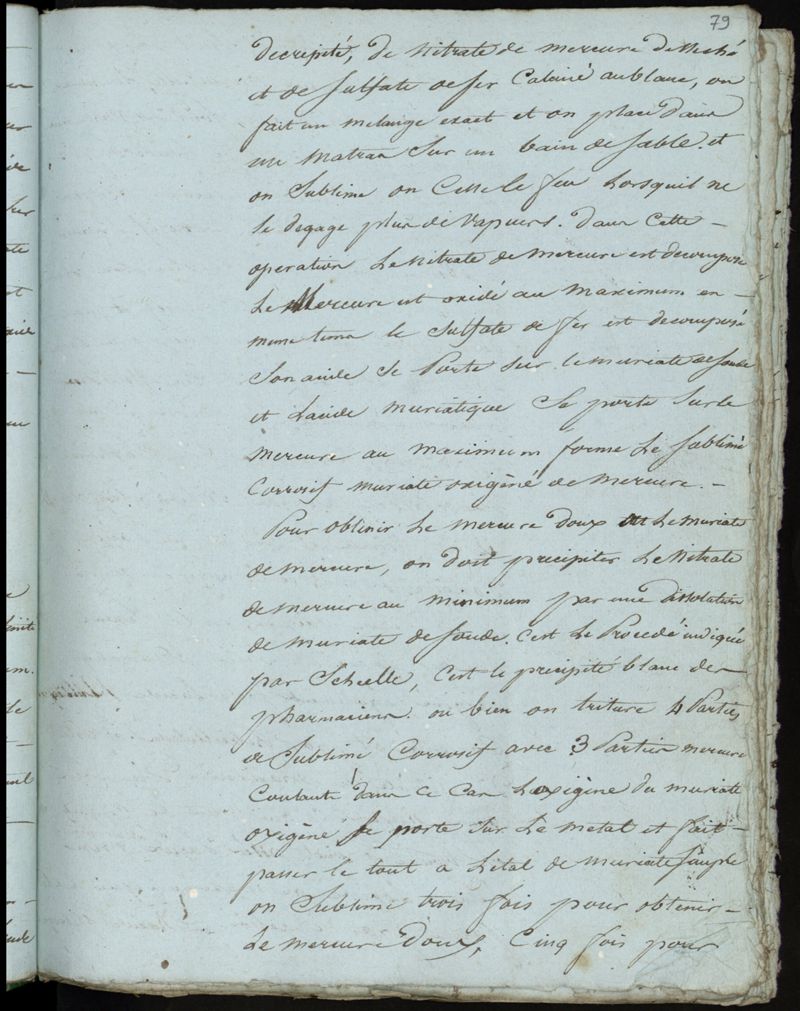 79
decrepité, de Nitrate de mercure desseché
et de sulfate de fer Calciné au blanc, on
fait un melange exact et on place dans
un matras sur un bain de sable et
on sublime on Cesse le feu Lorsquil ne
se degage plus de vapeurs. dans Cette –
operation Le Nitrate de mercure est decomposé
Le Mercure est oxidé au maximum en –
meme tems le sulfate de fer est decomposé
Son acide se Porte sur le muriate de soude
et Lacide muriatique se porte sur le
mercure au maximum forme Le sublimé
Corrosif muriate oxigèné de mercure. –
Pour obtenir Le mercure doux Le muriate
de mercure, on doit precipiter Le Nitrate
de mercure au minimum par une dissolution
de muriate de soude. C'est Le Procedé indiqué
par Schelle, C'est le precipité blanc des –
pharmaciens. ou bien on triture 4 Parties
de Sublimé Corrosif avec 3 Parties mercure
Coulant dans ce Cas Loxigène du muriate
oxigèné se porte sur Le metal et fait –
passer le tout a Létat de muriate simple
on sublime trois fois pour obtenir –
Le mercure doux, Cinq fois pour